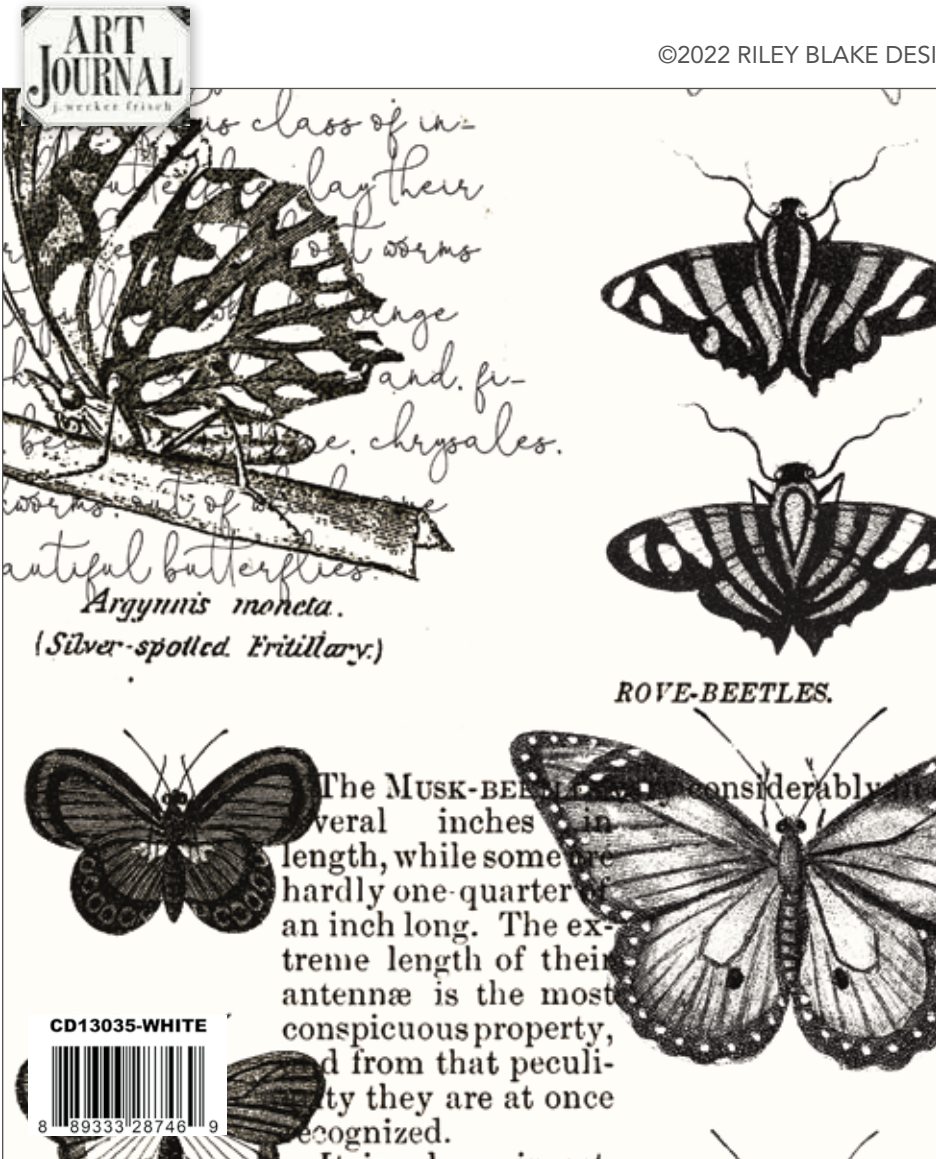 ART
JOURNAL
j.wecker frisch
©2022 RILEY BLAKE DESI
class of in-
lay their
worms
and, fi-
chrysales.
worms, out of
autiful butterflies.
Argynnis moneta.
(Silver-spotted Fritillary.)
ROVE-BEETLES.
The MUSK-BEETLES vary considerably
veral inches in
length, while some are
hardly one-quarter of
an inch long. The ex-
treme length of their
antennæ is the most
conspicuous property,
and from that peculi-
ty they are at once
recognized.
CD13035-WHITE
8 89333 28746 9